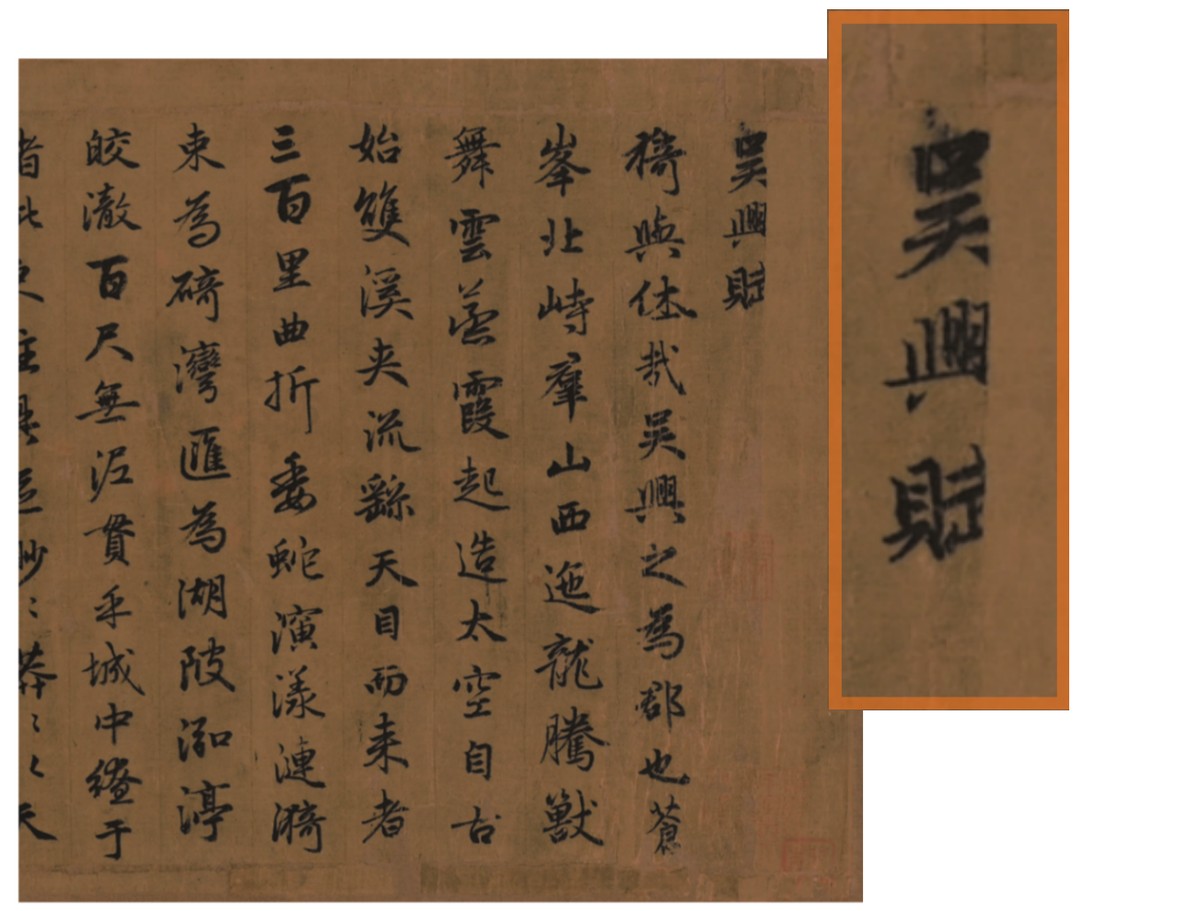 吴興賦
猗與休哉吴興之為郡也蒼
峯北峙羣山西迤龍騰獸
舞雲蒸霞起造太空自古
始雙溪夾流繇天目而来者
三百里曲折委蛇演漾漣漪
束為碕灣匯為湖陂泓渟
皎澈百尺無泥貫乎城中繚于
吴興賦